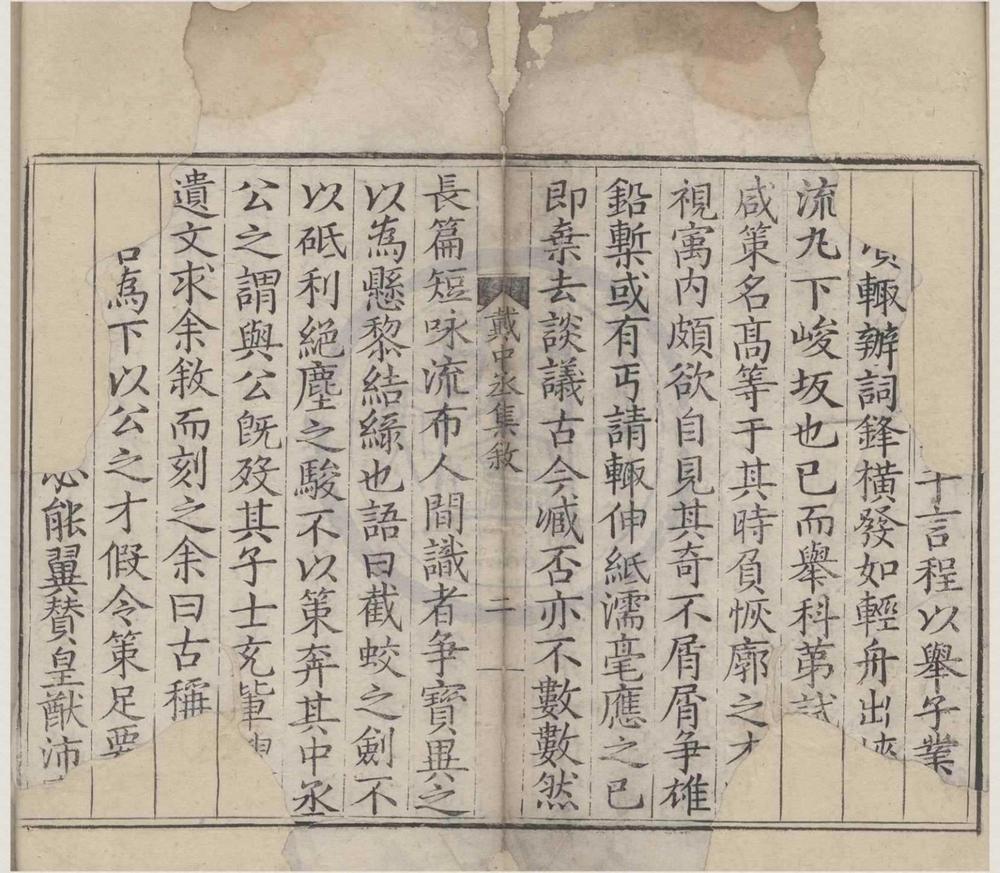 十言程以舉子業
輙辦詞鋒橫發如輕舟出峽
流九下峻坂也已而舉科第試
咸策名髙等于其時負恢廓之才
視寓内頗欲自見其奇不屑屑争雄
鉛槧或有丐請輙伸紙濡毫應之已
即棄去談議古今臧否亦不數數然
戴中丞集敘
二
長篇短咏流布人間識者争寳異之
以為懸黎結緑也語曰截蛟之劍不
以砥利絕塵之駿不以策奔其中丞
公之謂與公旣歿其子士充軰
遺文求余敘而刻之余曰古稱
為下以公之才假令策足要
必能翼賛皇猷沛